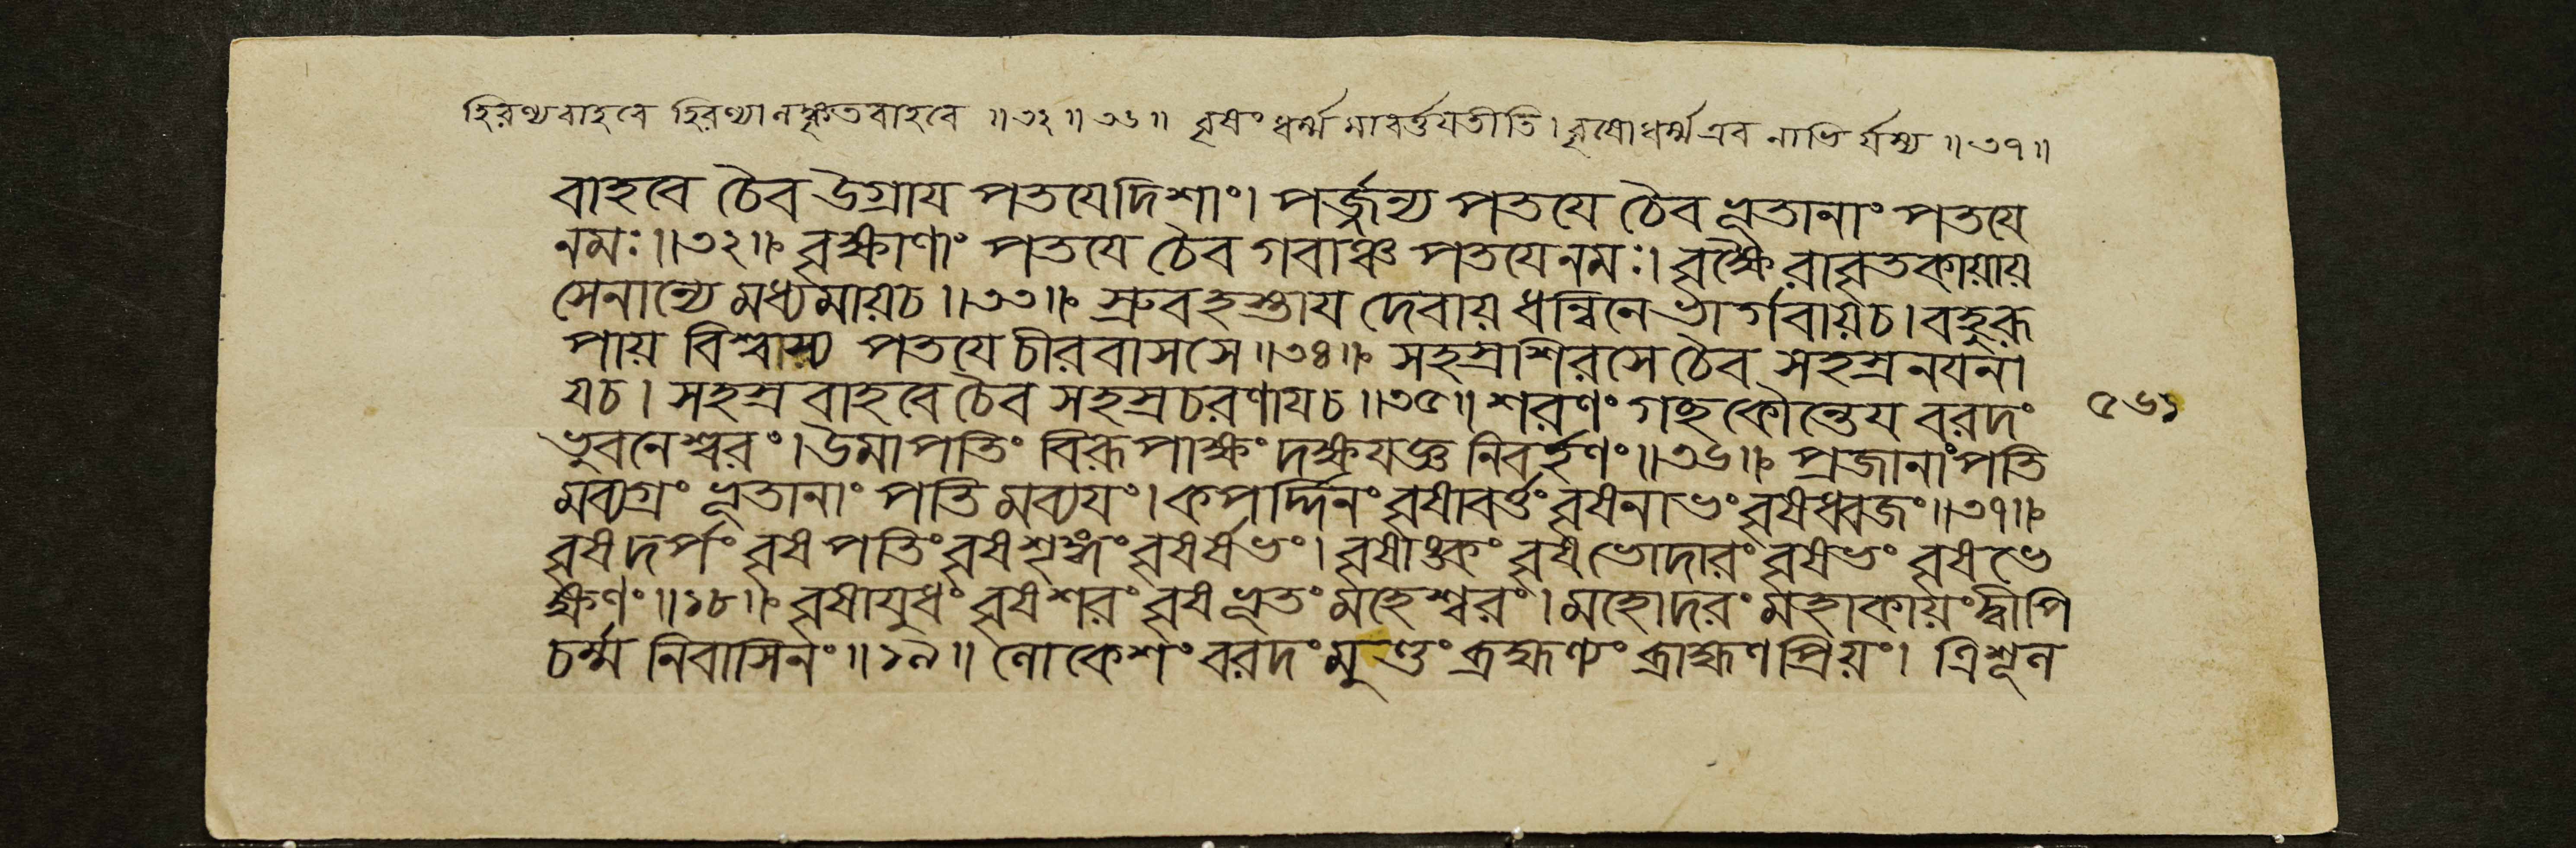 হিরণ্যবাহবে হিরণ্যালঙ্কৃতবাহবে ॥৩২॥৩৬॥ বৃষং ধর্ম্মমাবর্ত্তয়তীতি। বৃষো ধর্ম্ম এব নাভির্যস্য ॥৩৭॥
বাহবে চৈব উগ্রায পতযেদিশাং। পর্জ্জন্য পতযে চৈব ভূতানাং পতযে
নমঃ॥৩২॥ বৃক্ষাণাং পতযে চৈব গবাঞ্চ পতযেনমঃ। বৃক্ষৈরাবৃতকায়ায়
সেনান্যে মধ্যমায়চ॥৩৩॥ স্রুবহস্তায দেবায় ধন্বিনে ভার্গবায়চ। বহুরূ
পায় বিশ্বস্য পতযে চীরবাসসে॥৩৪॥ সহস্রশিরসে চৈব সহস্রনযনা
যচ। সহস্র বাহবে চৈব সহস্রচরণাযচ॥৩৫॥ শরণং গচ্ছ কৌন্তেয বরদং
৫৬১
ভুবনেশ্বরং। উমাপতিং বিরূপাক্ষং দক্ষযজ্ঞ নিবর্হণং॥৩৬॥ প্রজানাং পতি
মব্যগ্রং ভূতানাং পতি মব্যযং। কপর্দ্দিনং বৃষাবর্ত্তং বৃষনাভং বৃষধ্বজং॥৩৭॥
বৃষদর্পং বৃষপতিং বৃষশৃঙ্গং বৃষর্ষভং। বৃষাঙ্কং বৃষভোদারং বৃষভং বৃষভে
ক্ষণং॥১৮॥ বৃষাযুধং বৃষশরং বৃষভূতং মহেশ্বরং। মহোদরং মহাকায়ং দ্বীপি
চর্ম্ম নিবাসিনং॥১৯॥ লোকেশং বরদং মুণ্ডং ব্রহ্মণ্যং ব্রাহ্মণপ্রিয়ং। ত্রিশূল